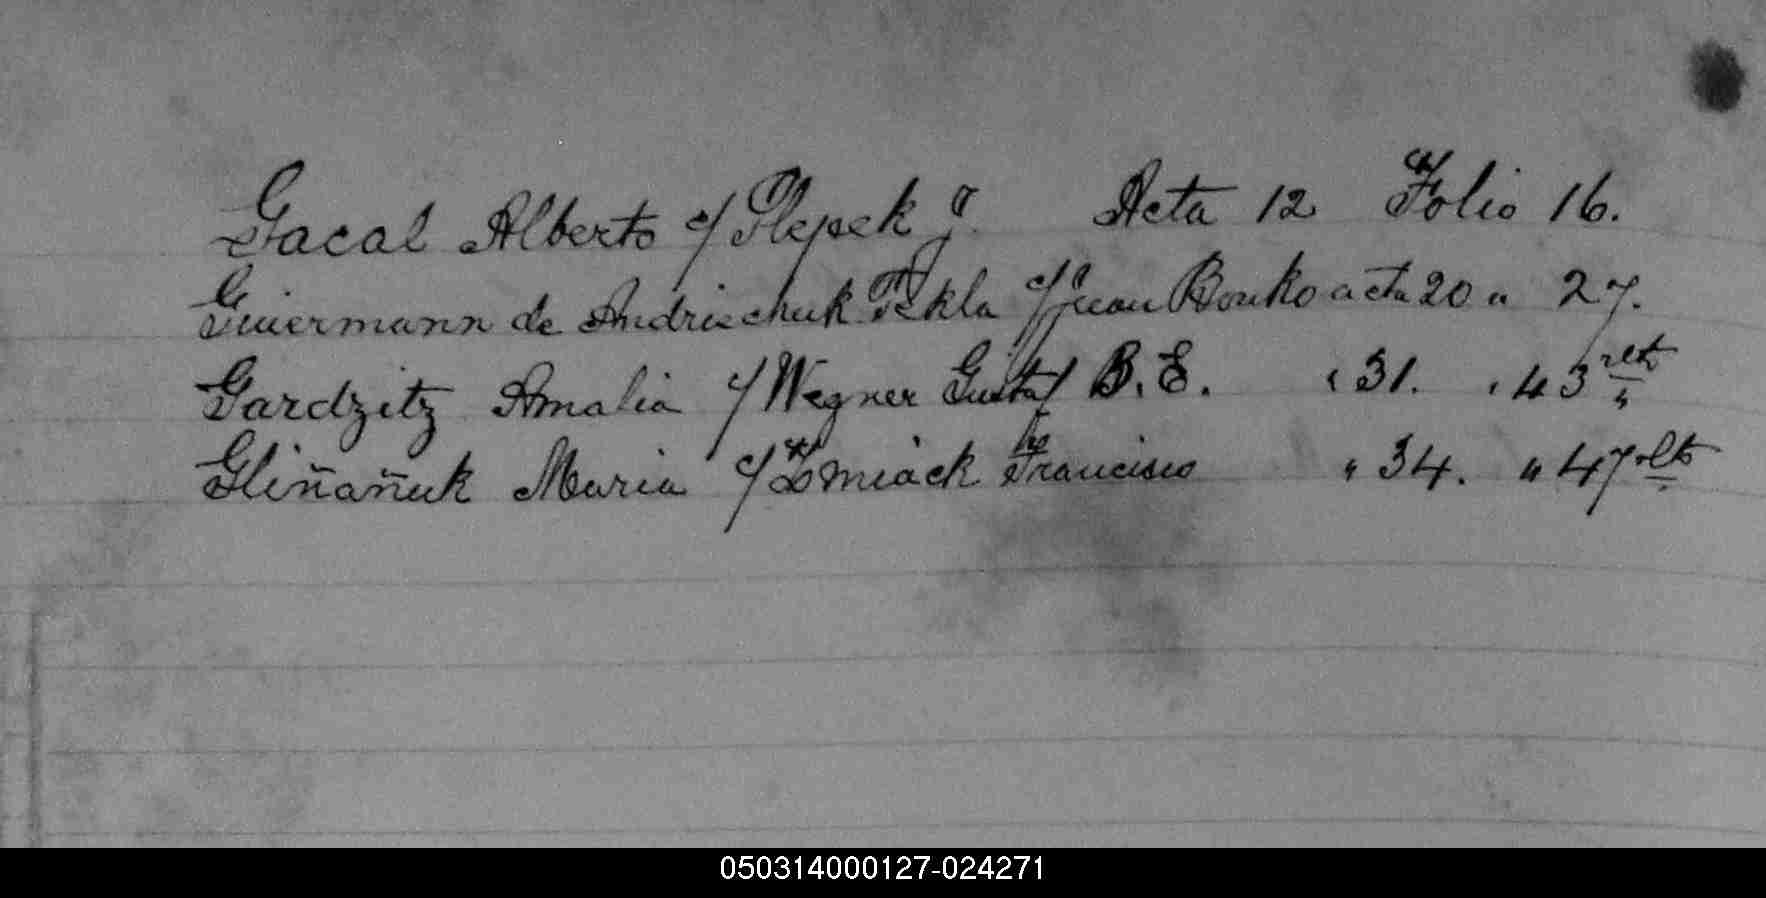 Gacal Alberto c/ Slepek J. Acta 12 Folio 16.
de Andrischuk Tekla c/ Juan Bouko acta 20 " 27.
Gardzitz Amalia c/ Wegner Gustaf B. E. " 31. " 43 vlto
Gliñañuk Maria c/ Zmiack Francisco " 34. " 47 vlto
050314000127-024271